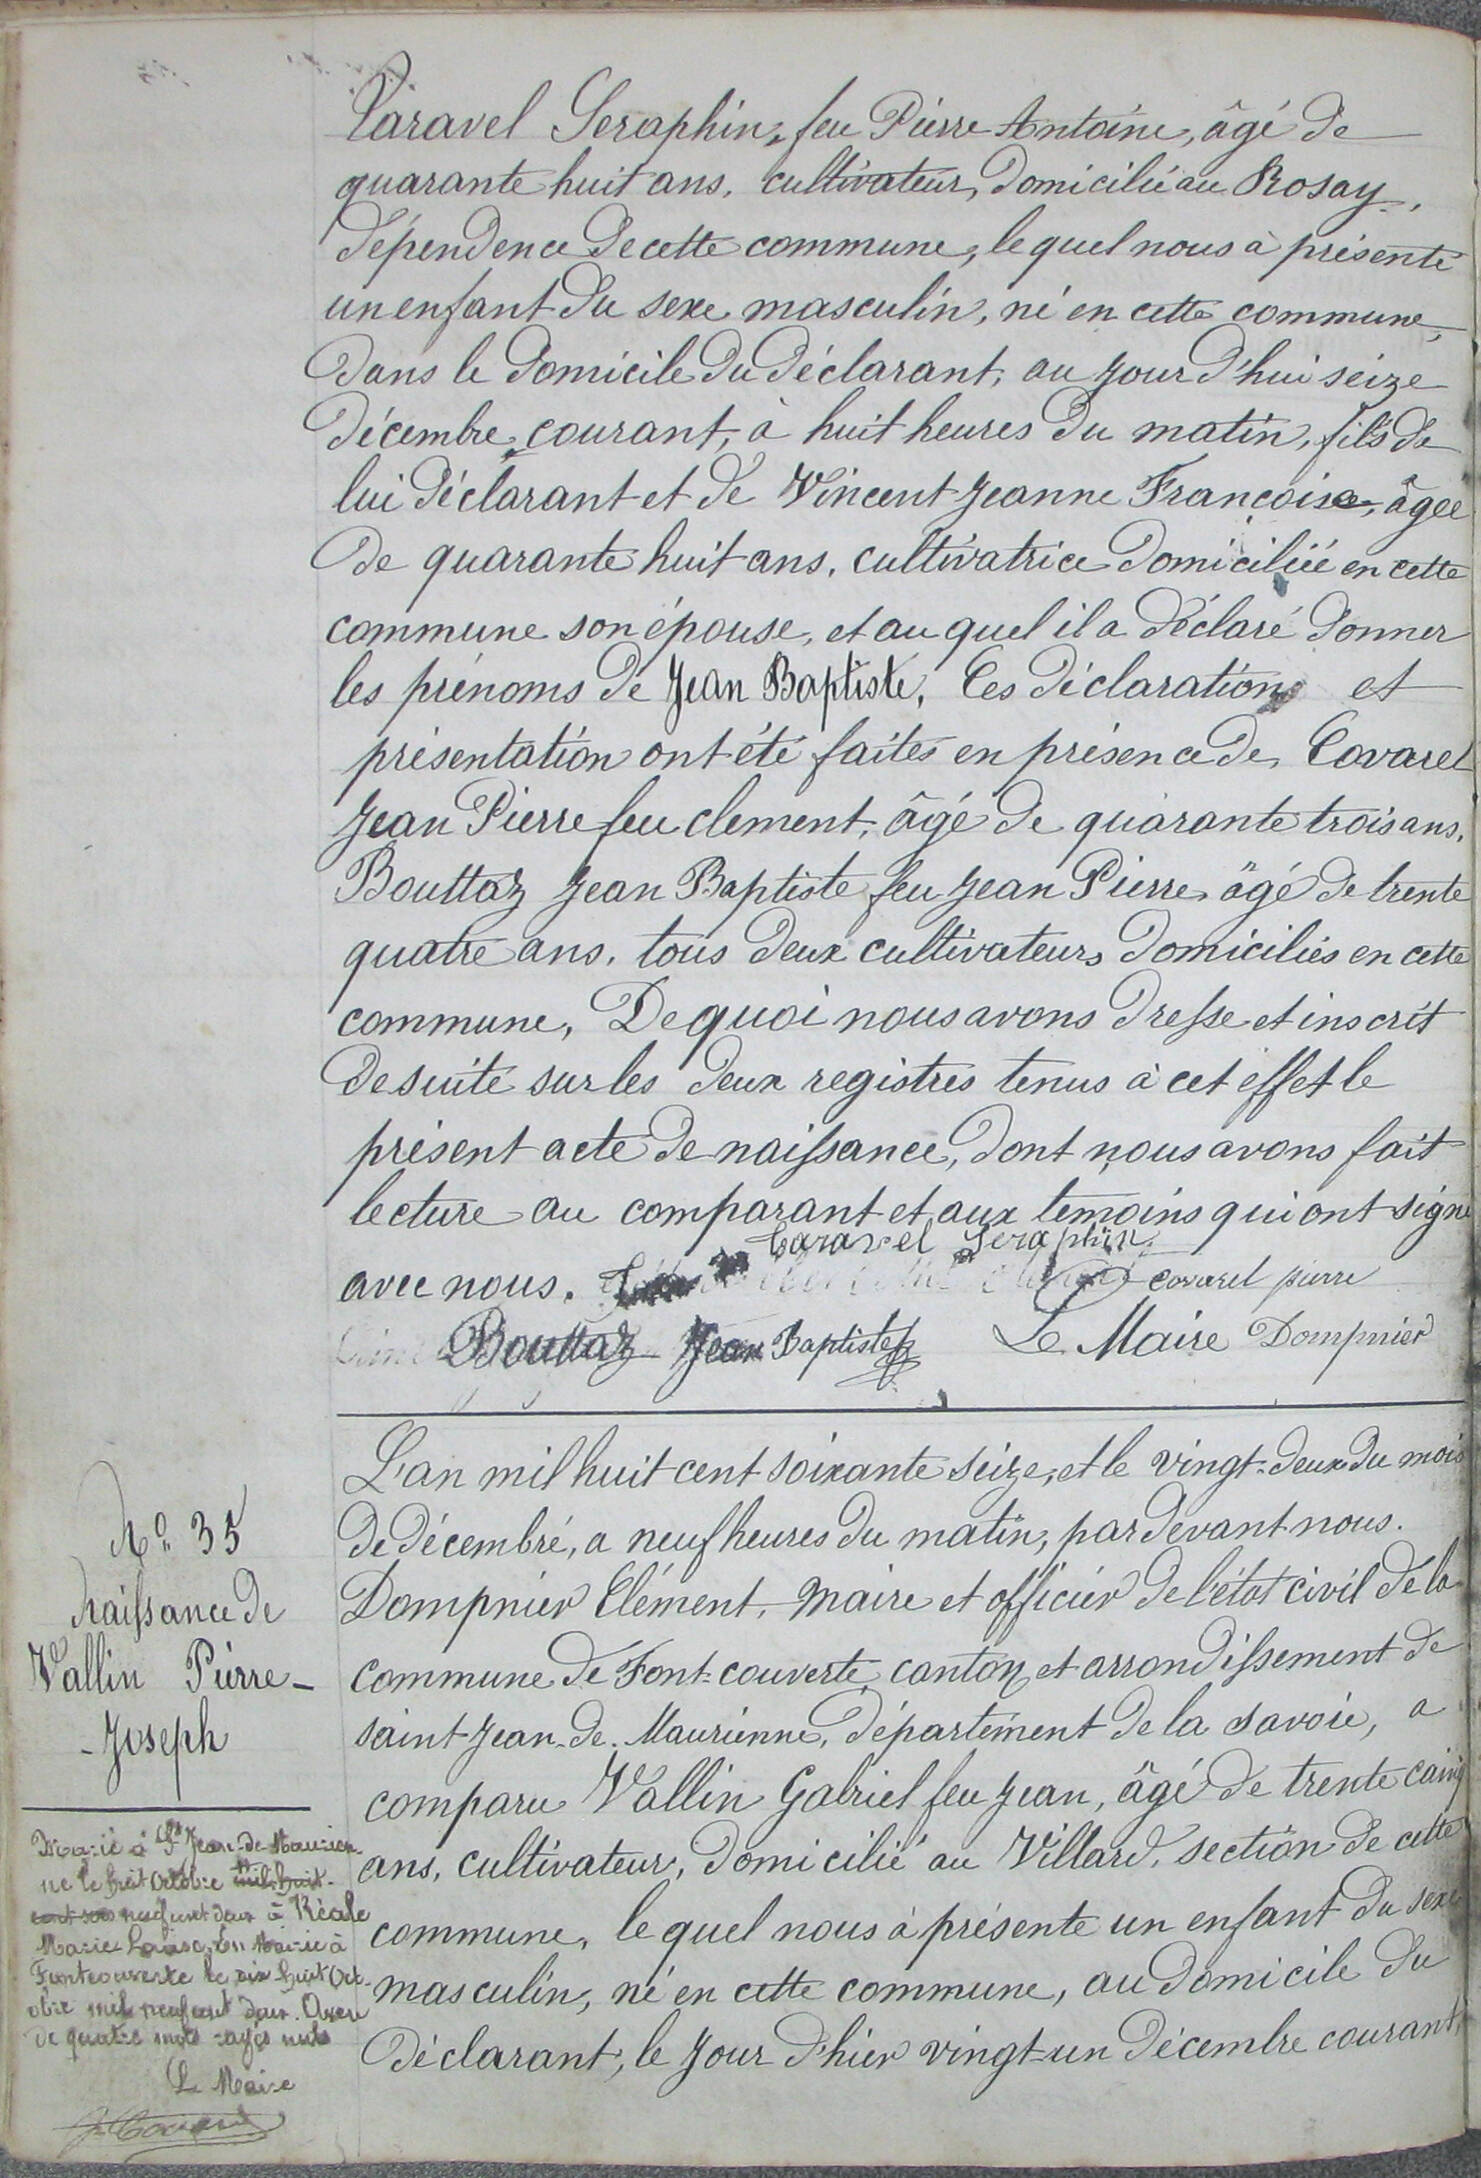 Caravel Seraphin, feu Pierre Antoine, âgé de
quarante huit ans, cultivateur, domicilié au Rosay,
dépendence de cette commune, le quel nous à présenté
un enfant du sexe masculin, né en cette commune,
dans le domicile du déclarant, au jour d'hui seize
décembre courant, à huit heures du matin, fils de
lui déclarant et de Vincent Jeanne Francoise, âgée
de quarante huit ans, cultivatrice domiciliée en cette
commune son épouse, et au quel il a déclaré donner
les prénoms de Jean Baptiste, Ces déclarations et
présentation ont été faites en présence de Covarel
Jean Pierre feu clement, âgé de quarante trois ans.
Bouttaz Jean Baptiste feu Jean Pierre âgé de trente
quatre ans, tous deux cultivateurs domiciliés en cette
commune, De quoi nous avons dresse et inscrit
de suite sur les deux registres tenus à cet effet le
présent acte de naissance, dont nous avons fait
lecture au comparant et aux temoins qui ont signé
Caravel Seraphin
avec nous. covarel pierre
Bouttaz Jean Baptiste Le Maire Dompnier
L'an mil huit cent soixante seize, et le vingt-deux du mois
de décembré, a neuf heures du matin, par devant nous.
Dompnier Clément, Maire et officier de l'état civil de la
commune de Font-couverte canton et arrondissement de
saint-Jean-de-Maurienne, département de la Savoie, a
comparu Vallin Gabriel feu Jean, âgé de trente cainq
ans, cultivateur, domicilié au Villard, section de cette
commune, le quel nous à présente un enfant du sexe
masculin, né en cette commune, au domicile du
déclarant, le Jour d'hier vingt-un décembre courant,
N° 35
Naissance de
Vallin Pierre-
-Joseph
Marié à St Jean-de-Maurien-
ne le huit Octobre mil huit-
cent neuf cent deux à Réale
Marie Louise,
Fontcouverte le dix huit Oct-
obre mil neuf cent deux.
de quatre mots rayés nuls
Le Maire